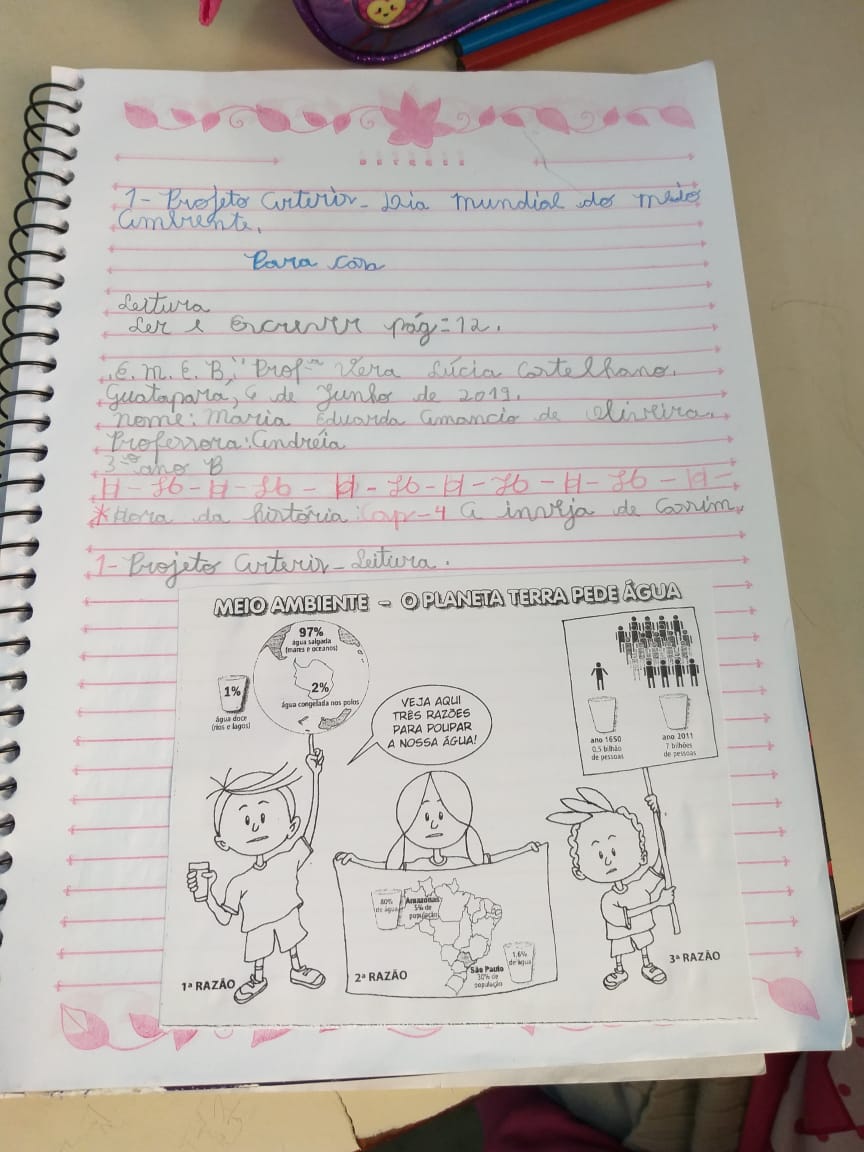 1- Projeto Arteris - Dia mundial do meio
ambiente.
Para casa
Leitura
Ler e Escrever pág=12.
E. M. E. B. "Profª Vera Lúcia Cortelhano.
Guatapará, 6 de Junho de 2019.
nome: Maria Eduarda Amancio de Oliveira.
Professora: Andréia
3º ano B
*Hora da história: Cap-4 A inveja de Cassim.
1- Projeto Arteris - Leitura.
MEIO AMBIENTE - O PLANETA TERRA PEDE ÁGUA
97%
água salgada
(mares e oceanos)
1%
água doce
(rios e lagos)
2%
água congelada nos polos
VEJA AQUI
TRÊS RAZÕES
PARA POUPAR
A NOSSA ÁGUA!
ano 1650
0,5 bilhão
de pessoas
ano 2011
7 bilhões
de pessoas
80%
de água
Amazonas
5% de
população
São Paulo
30% de
população
1,6%
de água
1ª RAZÃO
2ª RAZÃO
3ª RAZÃO